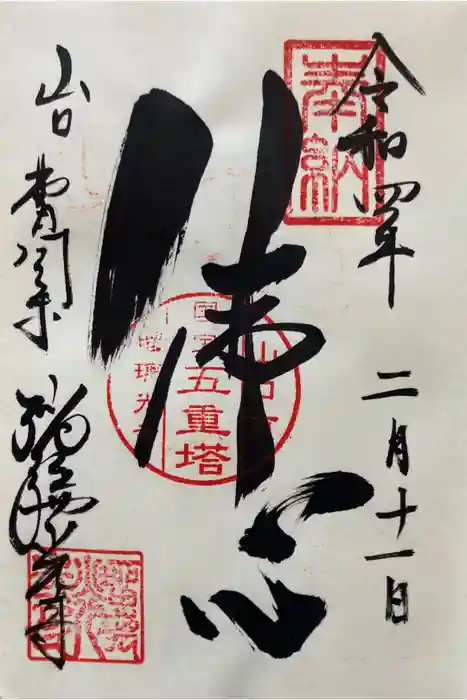 奉納
令和四年
二月十一日
佛心
山口
国宝
五重塔
瑠璃光寺
山口
瑠璃光寺